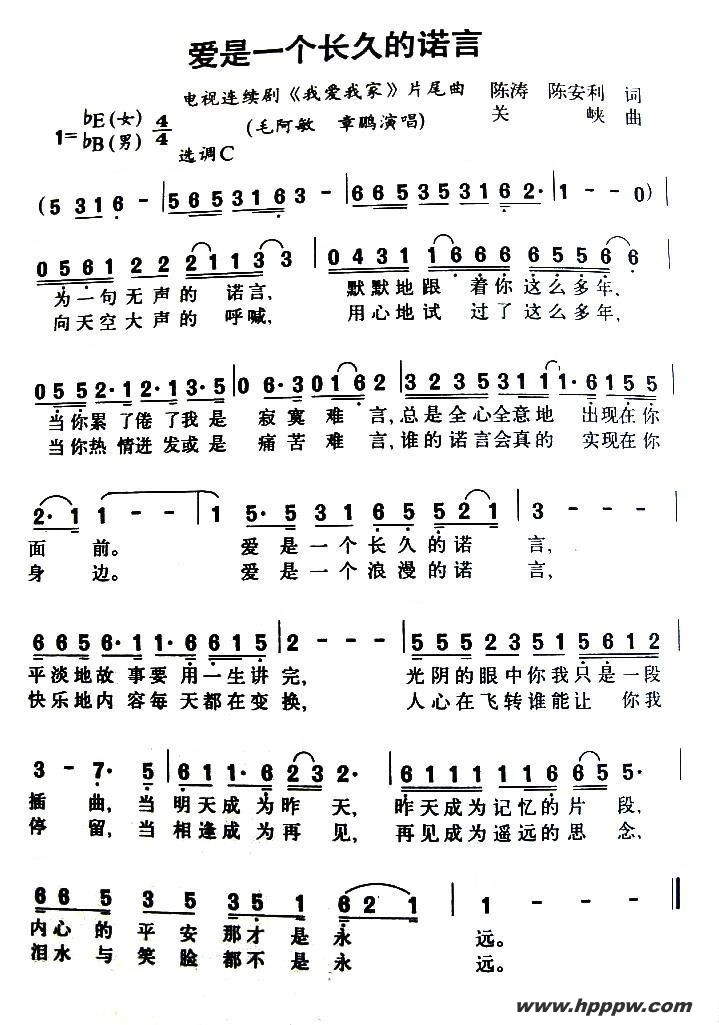 爱是一个长久的诺言
电视连续剧《我爱我家》片尾曲 陈涛 陈安利 词
(毛阿敏 章鹏演唱) 关峡 曲
1= ♭E(女) ♭B(男) 4/4
选调C
(5 316 - | 565316 3 - | 665353162· | 1 - - 0) |
0561 22 21133 | 0431 1666 65566 |
为一句无声的 诺言, 默默地跟 着你这么多年,
向天空大声的 呼喊, 用心地试 过了这么多年,
055 2·12·13·5 | 0 6·3016 2 | 3235311 1·6155 |
当你累了倦了我是 寂寞难 言,总是全心全意地 出现在你
当你热情迸发或是 痛苦难 言,谁的诺言会真的 实现在你
2·1 1 - - | 1 5·5 316 5521 | 3 - - - |
面 前。 爱是一个长久的诺 言,
身 边。 爱是一个浪漫的诺 言,
665 6·11·6 615 | 2 - - - | 555 235 15612 |
平淡地故事要 用一生讲 完, 光阴的眼中你我只是一段
快乐地内容每 天都在变 换, 人心在飞转谁能让 你我
3 - 7· 5 | 611·6 23 2· | 61111·6 65 5· |
插 曲, 当 明天成为昨 天, 昨天成为记忆的片 段,
停 留, 当 相逢成为再 见, 再见成为遥远的思 念,
66 5 3 5 35 1 621 | 1 - - - ‖
内心 的 平 安 那才 是 永 远。
泪水 与 笑 脸 都不 是 永 远。
www.hpppw.com